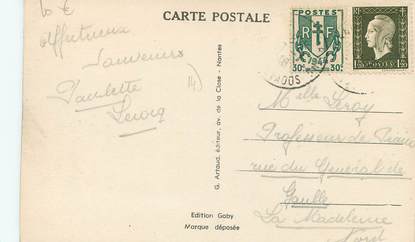 10 €
CARTE POSTALE
Affectueux
Souvenirs
Paulette
Leroy
G. Artaud, éditeur, av. de la Close - Nantes
Edition Gaby
Marque déposée
POSTES
RF
30c 30c
1f50 1f50
1946
Melle Leroy
Professeur de Piano
rue du Général de
Gaulle
La Madeleine
Nord